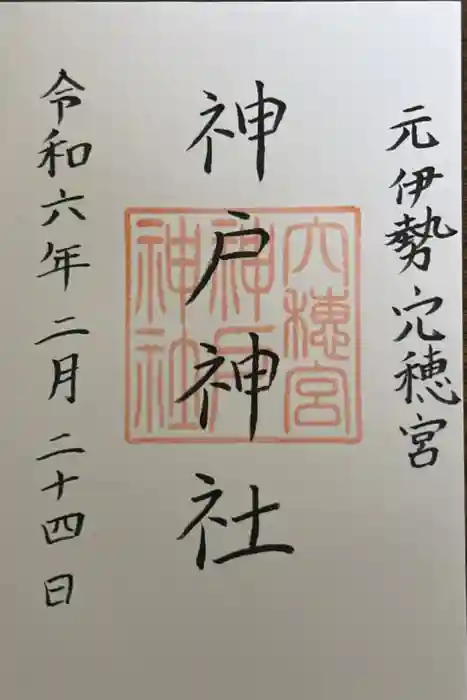 元伊勢宍穂宮
神戸神社
穴穂宮
神戸
神社
令和六年二月二十四日